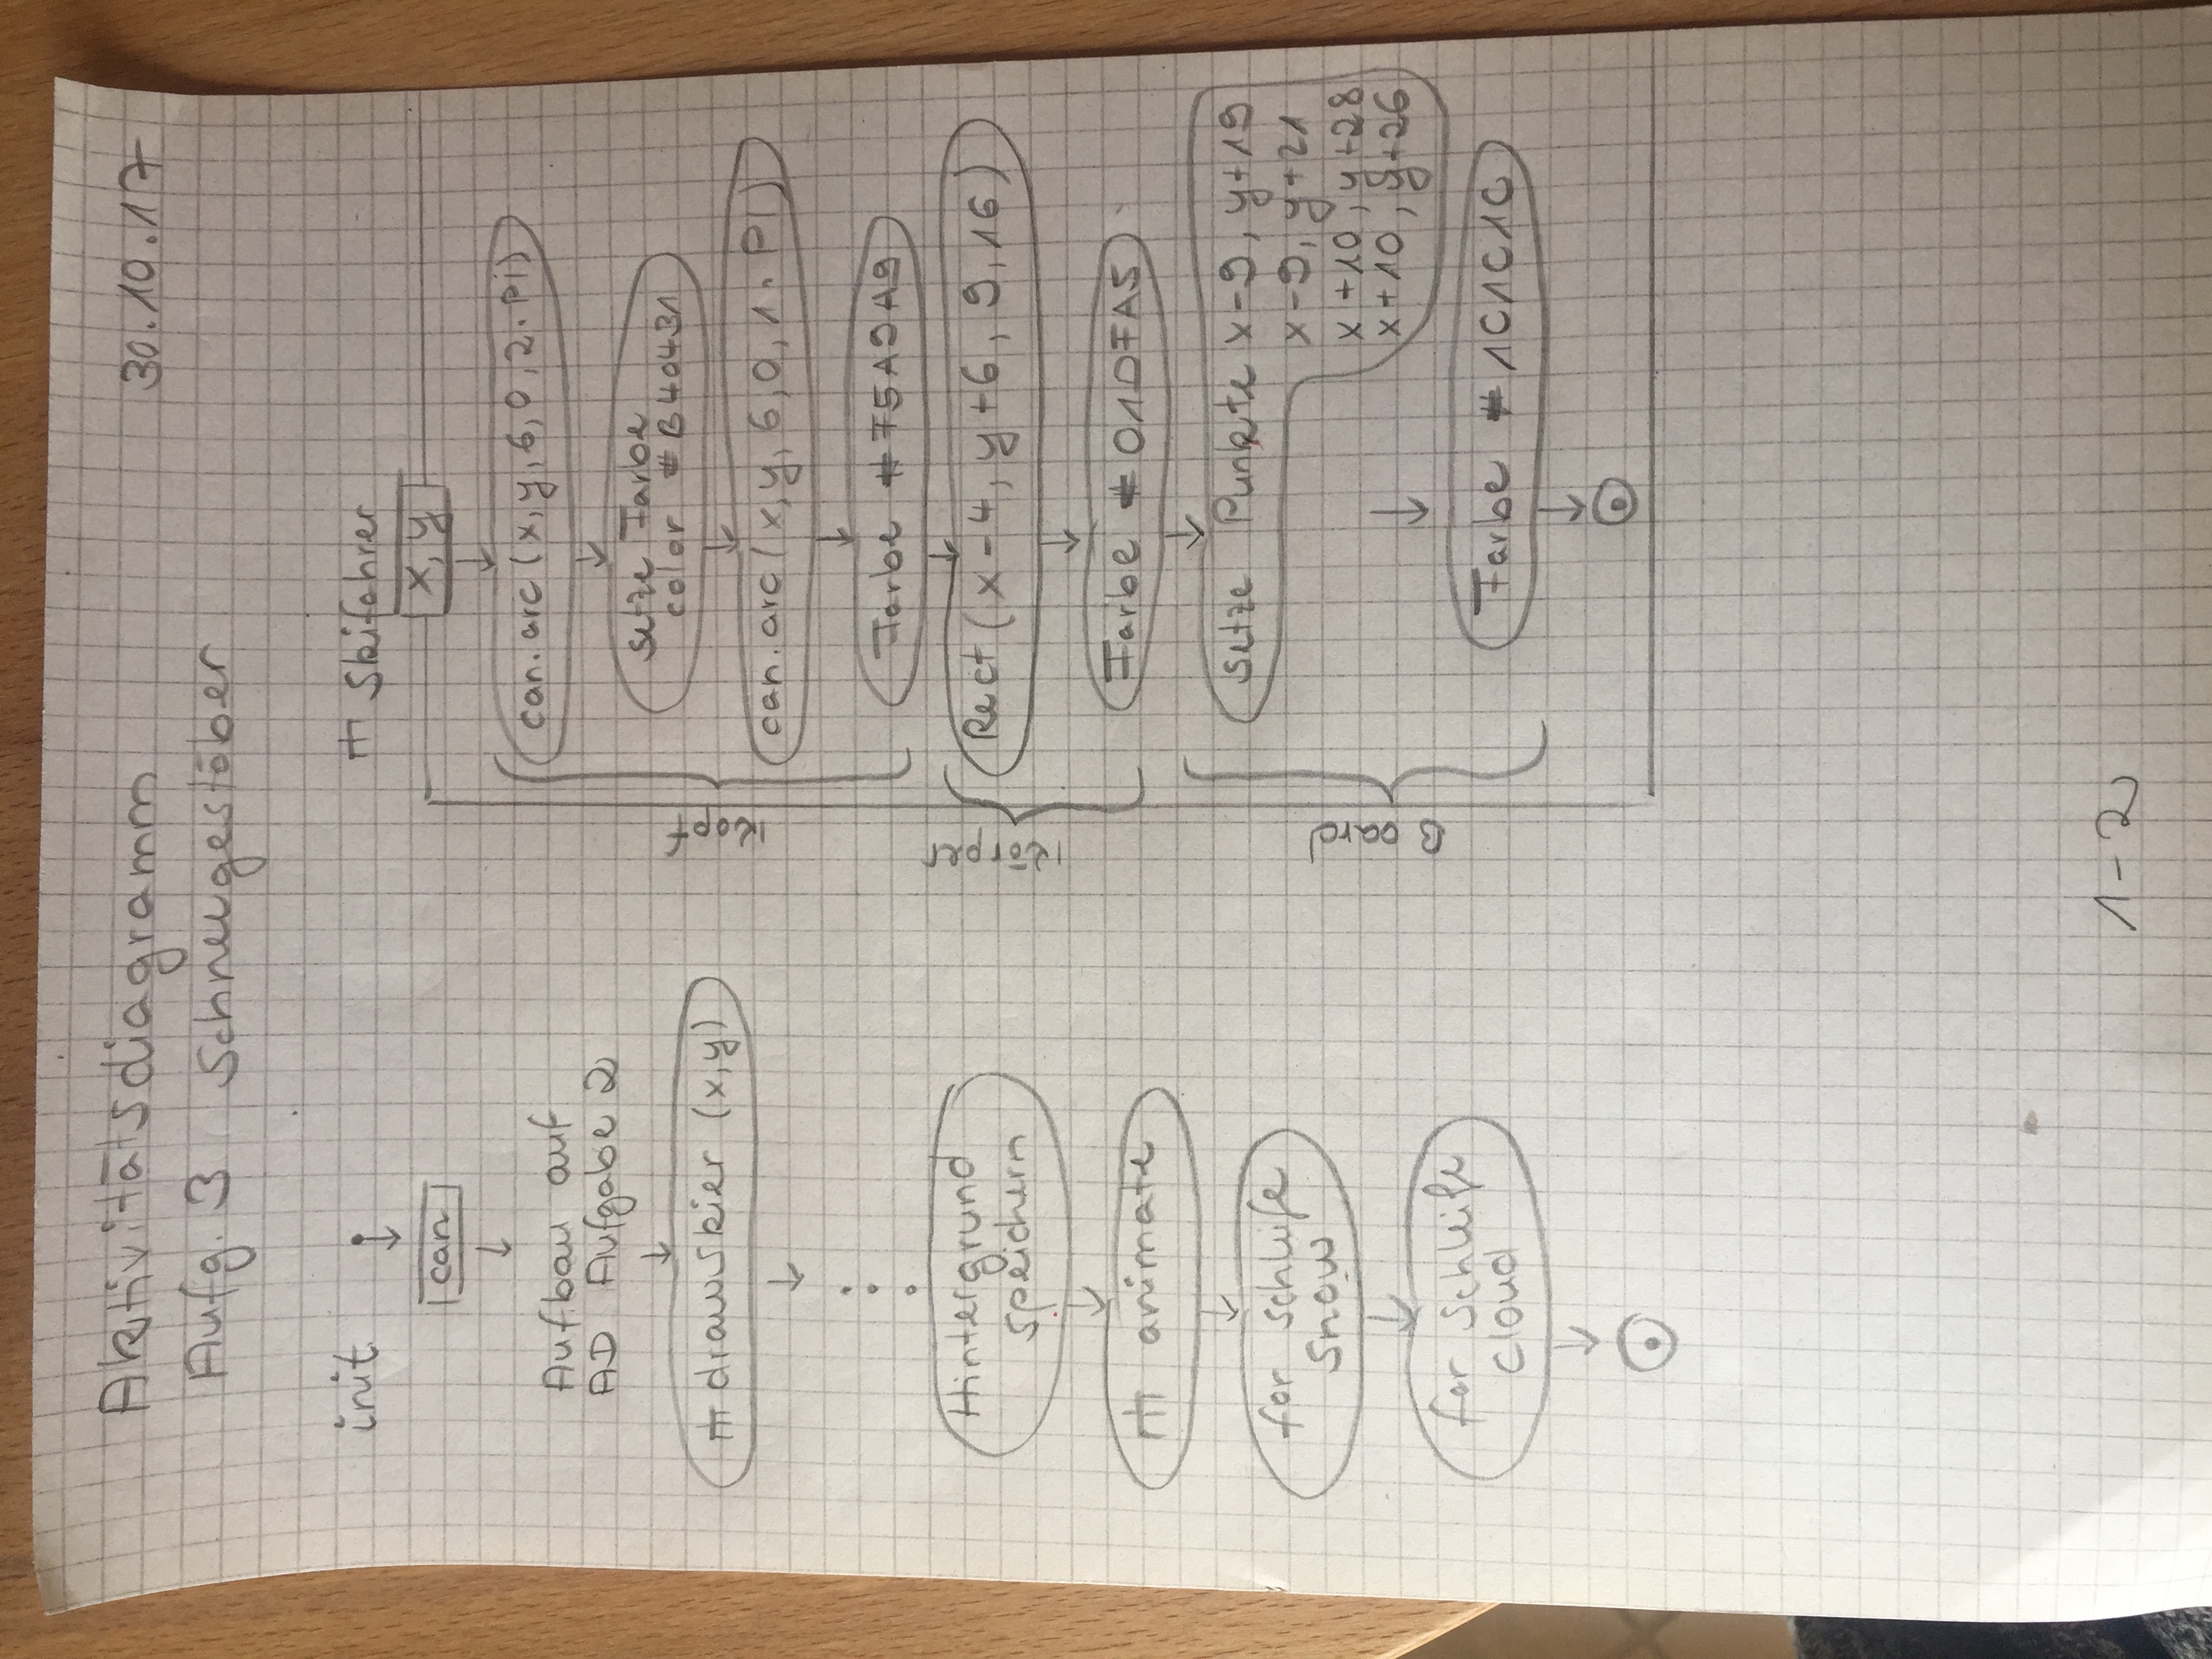 Aktivitätsdiagramm
30.10.17
Aufg. 3 Schneegestöber
init
can
Aufbau auf
AD Aufgabe 2
drawSkier (x,y)
Hintergrund
speichern
animate
for schleife
Snow
for Schleife
cloud
Skifahrer
x, y
Kopf
can.arc (x, y, 6, 0, 2 · Pi)
setze Farbe
color #B40431
can.arc (x, y, 6, 0, 1 · PI)
Farbe #F5A9A9
Körper
Rect (x-4, y+6, 9, 16)
Farbe #01DFA5
Board
Setze Punkte x-9, y+19
x-9, y+21
x+10, y+28
x+10, y+26
Farbe #1C1C1C
1-2